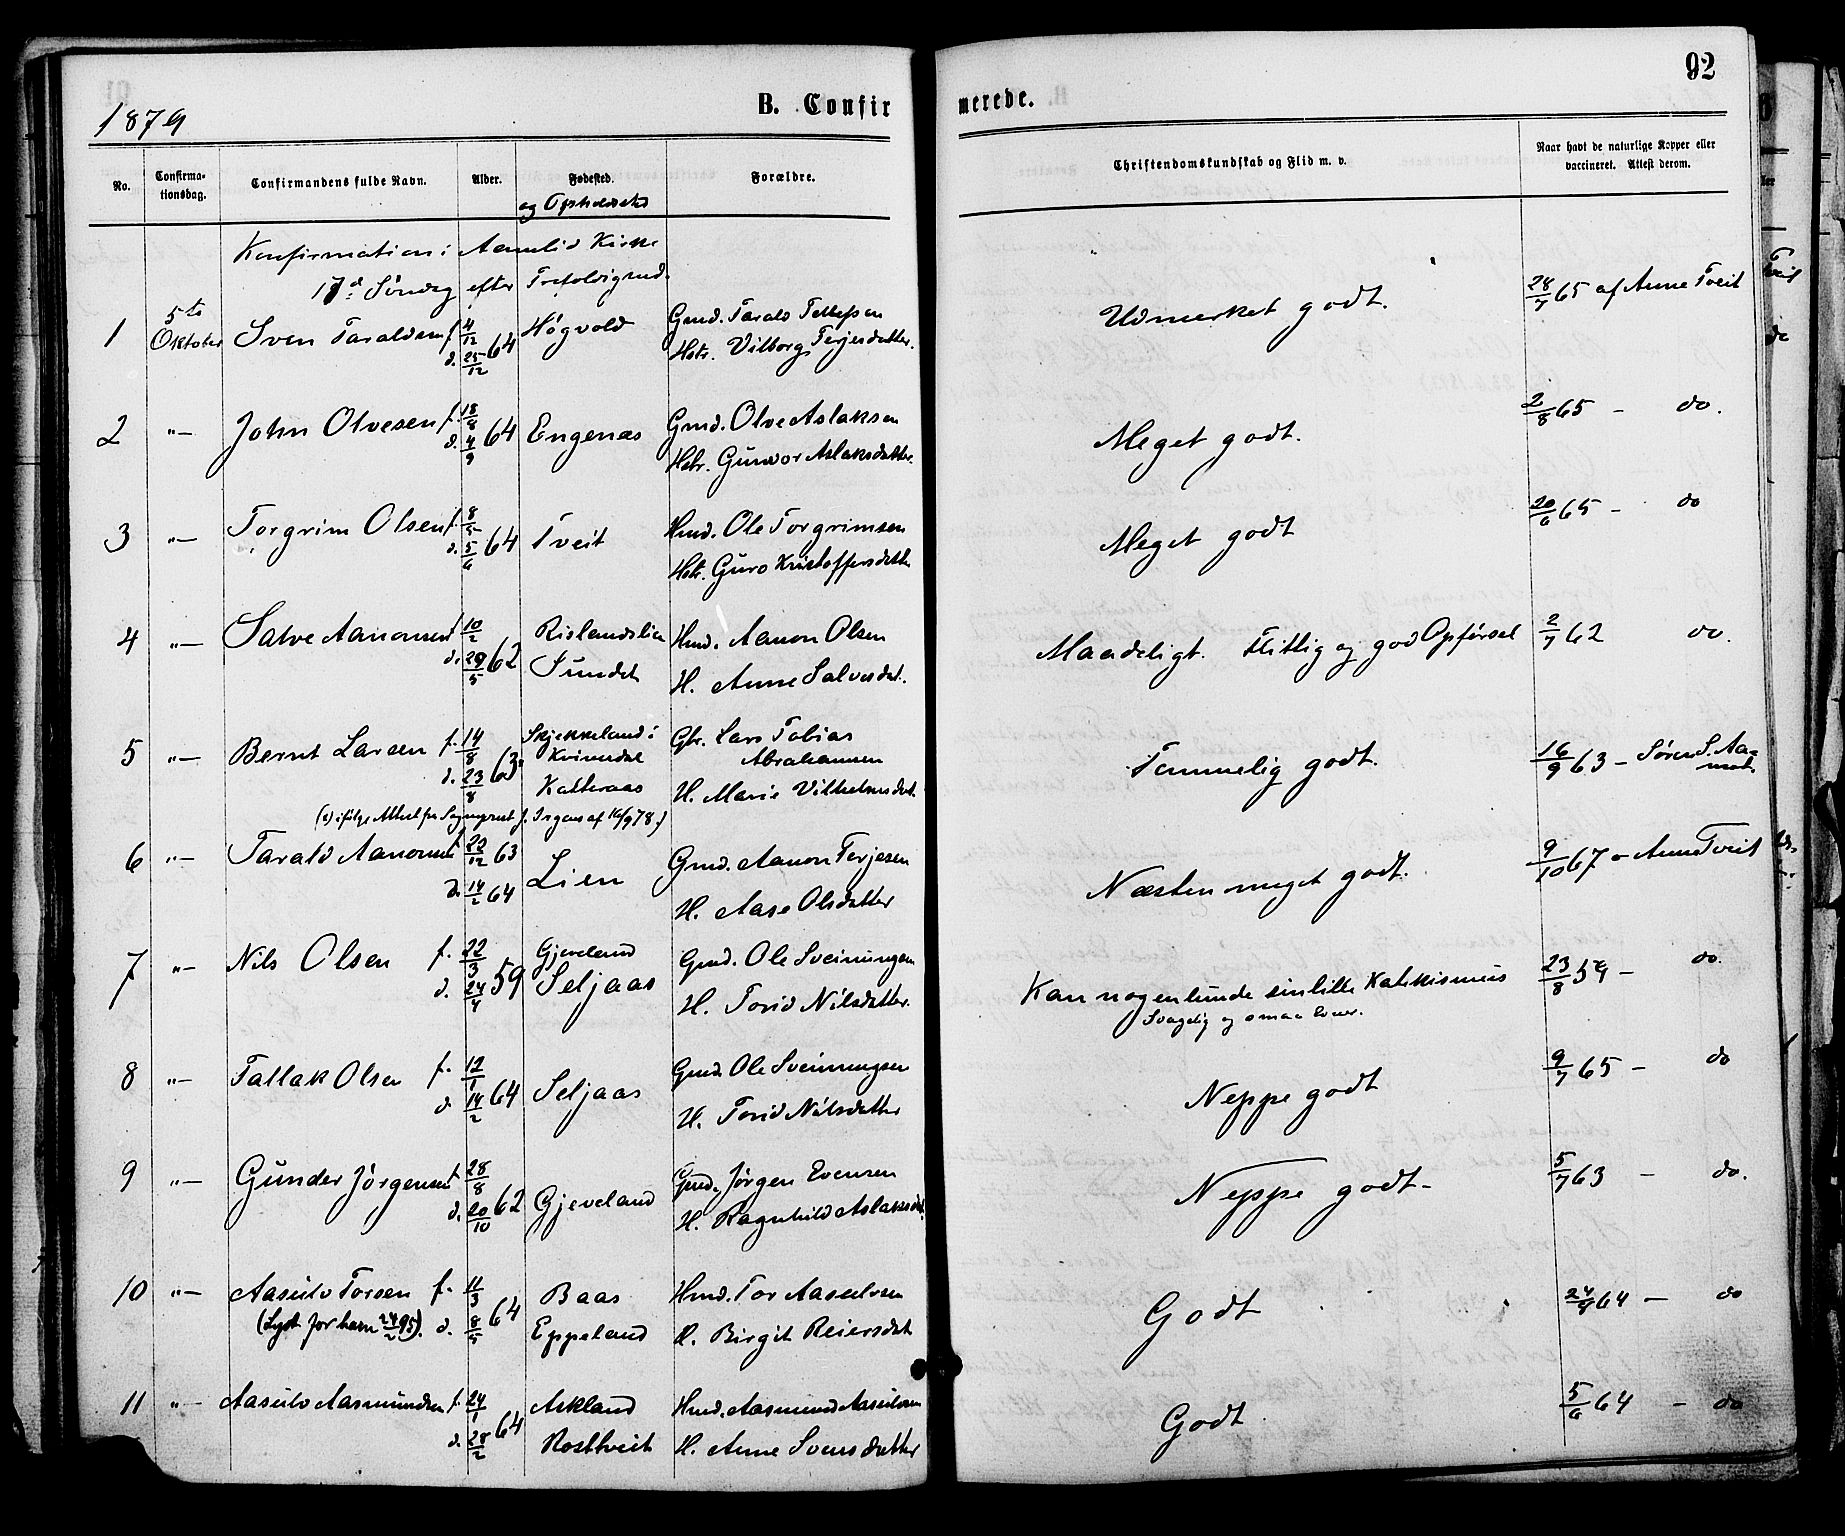 92
1879
B. Confirmerede.
No.
Confirmationsdag.
Confirmandens fulde Navn.
Alder.
Fødested.
og Opholdssted
Forældre.
Christendomskundskab og Flid m. v.
Naar havt de naturlige Kopper eller
vaccineret. Attest derom.
Konfirmation i Aamlid Kirke
17d: Søndag efter Trefoldighed.
1 5te Oktober Sven Taraldsen f. 4/12 d. 25/12 64 Høgvold
Gmd. Tarald Tellefsen
Hstr. Vilborg Terjesdatter.
Udmerket godt. 28/7 65 af Anne Tveit
2 "— John Olvesen f. 18/8 d. 4/9 64 Engenæs
Gmd. Olve Aslaksen
Hstr. Gunvor Aslaksdatter.
Meget godt. 2/8 65 – do.
3 "— Torgrim Olsen f. 8/5 d. 5/6 64 Tveit
Hmd. Ole Torgrimsen
Hstr. Guro Kristoffersdatter
Meget godt 20/6 65 – do
4 "— Salve Aanonsen f. 10/2 d. 29/5 62 Rislandslien
Sundet
Hmd. Aanon Olsen
H. Anne Salvesdat.
Maadeligt. Flittig og god Opførsel 2/7 62 do.
5 "— Bernt Larsen f. 14/8 d. 23/8 63 Skjekkeland i
Kvinesdal
Kalteraas
Gbr. Lars Tobias
Abrahamsen
H. Marie Vilhelmsdat.
Temmelig godt. 16/9 63 – Søren S. Aamot.
(e) ifølge Attest fra Sogneprest J. Irgens af 16/9 78.)
6 "— Tarald Aanonsen f. 22/12 63 d. 14/2 64 Lien
Gmd. Aanon Terjesen
H. Aase Olsdatter
Næsten meget godt. 9/10 67 – Anne Tveit
7 "— Nils Olsen f. 22/3 d. 24/4 59 Gjeveland
Seljaas
Gmd. Ole Sveinungsen
H. Torid Nilsdatter.
Kan nogenlunde sin lille Katekismus 23/8 59 – do.
Svagelig og smaa Evner.
8 "— Tallak Olsen f. 12/1 d. 14/2 64 Seljaas
Gmd. Ole Sveinungsen
H. Torid Nilsdatter
Neppe godt 9/7 65 – do
9 "— Gunder Jørgensen f. 28/8 d. 20/10 62 Gjeveland
Gmd. Jørgen Evensen
H. Ragnhild Aslaksdat.
Neppe godt – 5/7 63 – do.
10 "— Aasulv Torsen f. 11/3 d. 8/5 64 Baas
(Lyst for ham 24/2 95).
Eppeland
Hmd. Tor Aasulvsen
H. Birgit Reiersdat
Godt 24/9 64 – do
11 "— Aasulv Aasmundsen f. 24/1 d. 28/2 64 Askland
Rosttveit
Hmd. Aasmund Aasulvsen
H. Anne Svensdatter
Godt 5/6 64 – do